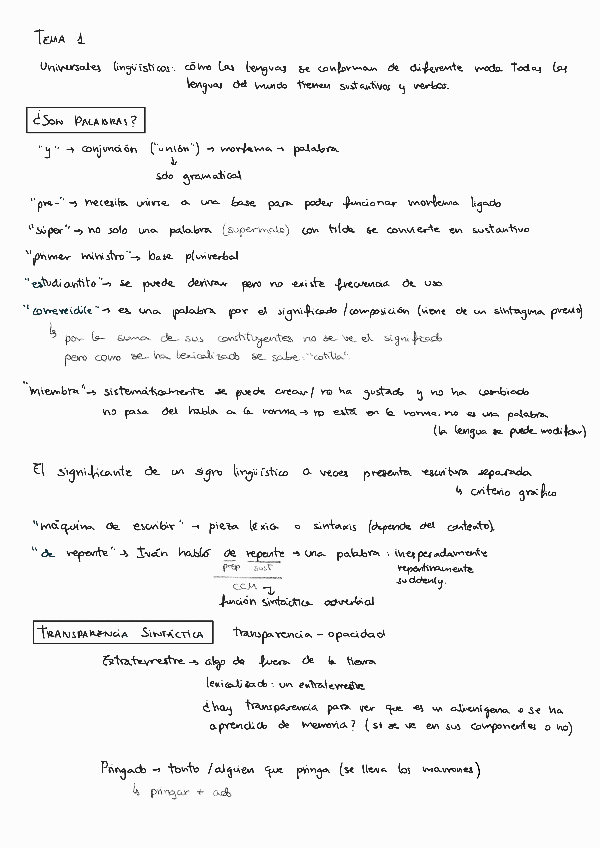 TEMA 1
Universales lingüísticos: cómo las lenguas se conforman de diferente modo. Todas las
lenguas del mundo tienen sustantivos y verbos.
¿SON PALABRAS?
"y" → conjunción ("unión") → morfema → palabra
↓
solo gramatical
"pre-" → necesita unirse a una base para poder funcionar morfema ligado
"súper" → no solo una palabra (supermalo) con tilde se convierte en sustantivo
"primer ministro" → base pluriverbal
"estudiantito" → se puede derivar pero no existe frecuencia de uso
"correveidile" → es una palabra por el significado/composición (viene de un sintagma previo)
↳ por la suma de sus constituyentes no se ve el significado
pero como se ha lexicalizado se sabe: "cotilla"
"miembra" → sistemáticamente se puede crear/ no ha gustado y no ha cambiado
no pasa del habla a la norma → no está en la norma, no es una palabra
(la lengua se puede modificar)
El significante de un signo lingüístico a veces presenta escritura separada
↳ criterio gráfico
"máquina de escribir" → pieza léxica o sintaxis (depende del contexto).
"de repente" → Iván habló de repente → una palabra: inesperadamente
prep sust repentinamente
CCM suddenly.
función sintáctica adverbial
TRANSPARENCIA SINTÁCTICA transparencia - opacidad
Extraterrestre → algo de fuera de la tierra
lexicalizado: un extraterrestre
¿hay transparencia para ver que es un alienígena o se ha
aprendido de memoria? (si se ve en sus componentes o no)
Pringado → tonto /alguien que pringa (se lleva los marrones)
↳ pringar + ado